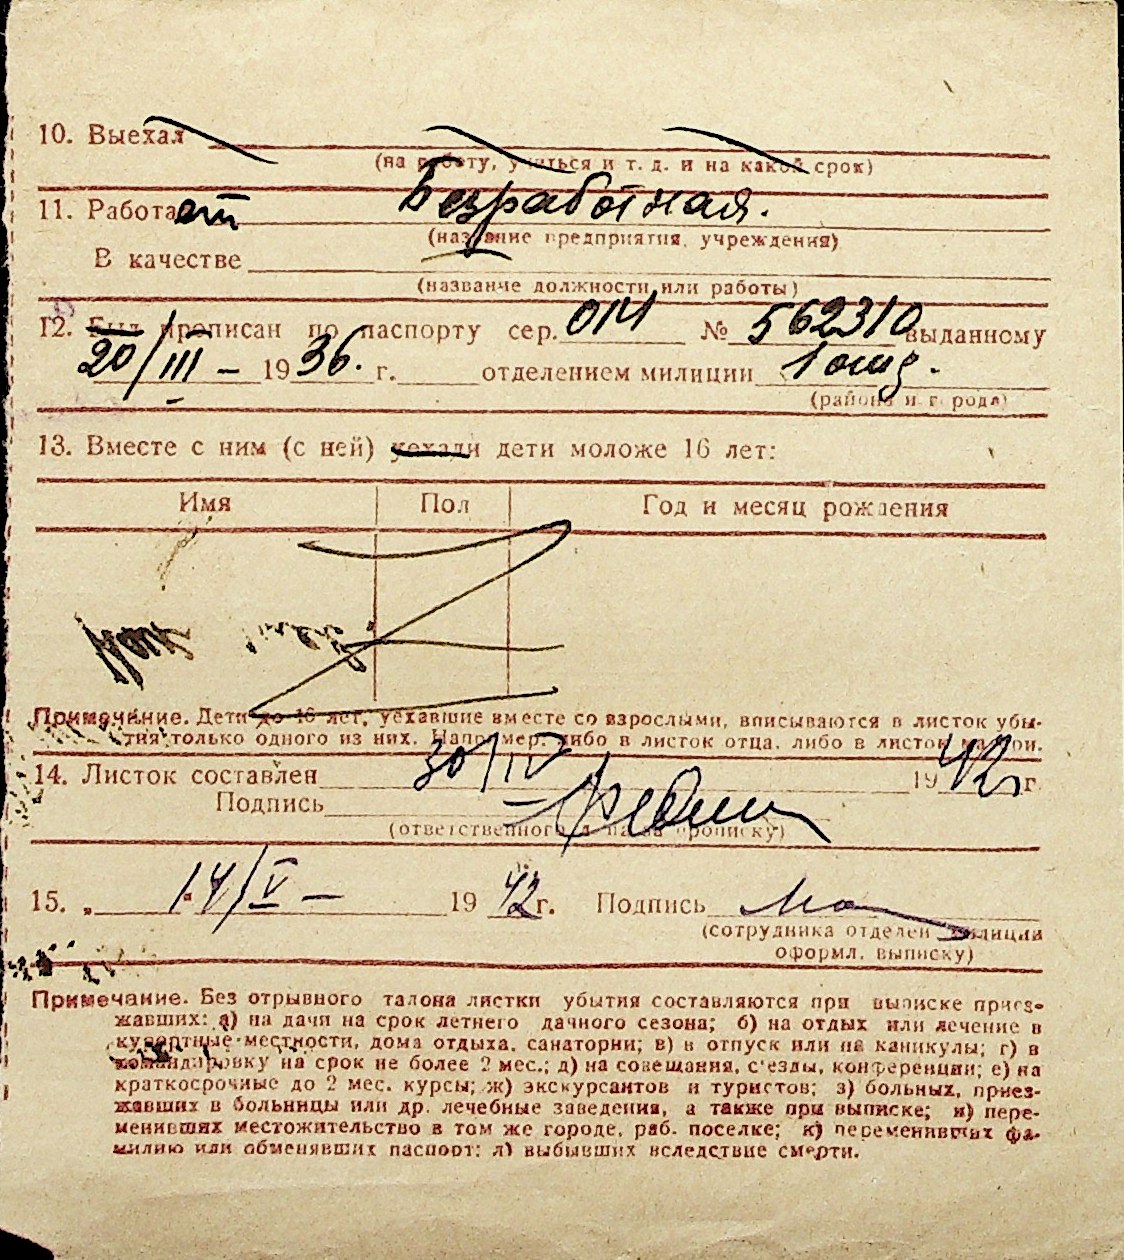 10. Выехал
(на работу, учиться и т. д. и на какой срок)
11. Работает Безработная.
(название предприятия, учреждения)
В качестве
(название должности или работы)
12. Был прописан по паспорту сер. № 562310 выданному
20/III – 1936. г. отделением милиции 1 отд.
(района и города)
13. Вместе с ним (с ней) уехали дети моложе 16 лет:
Имя Пол Год и месяц рождения
Примечание. Дети до 16 лет, уехавшие вместе со взрослыми, вписываются в листок убы-
тия только одного из них. Например: либо в листок отца, либо в листок матери.
14. Листок составлен 30/IV 1942 г.
Подпись
(ответственного л. на за прописку)
15. „ 14/V – 1942 г. Подпись
(сотрудника отделен. милиции
оформл. выписку)
Примечание. Без отрывного талона листки убытия составляются при выписке приез-
жавших: а) на дачи на срок летнего дачного сезона; б) на отдых или лечение в
курортные местности, дома отдыха, санатории; в) в отпуск или на каникулы; г) в
командировку на срок не более 2 мес.; д) на совещания, с'езды, конференции; е) на
краткосрочные до 2 мес. курсы; ж) экскурсантов и туристов; з) больных, приез-
жавших в больницы или др. лечебные заведения, а также при выписке; и) пере-
менивших местожительство в том же городе, раб. поселке; к) переменивших фа-
милию или обменявших паспорт; л) выбывших вследствие смерти.